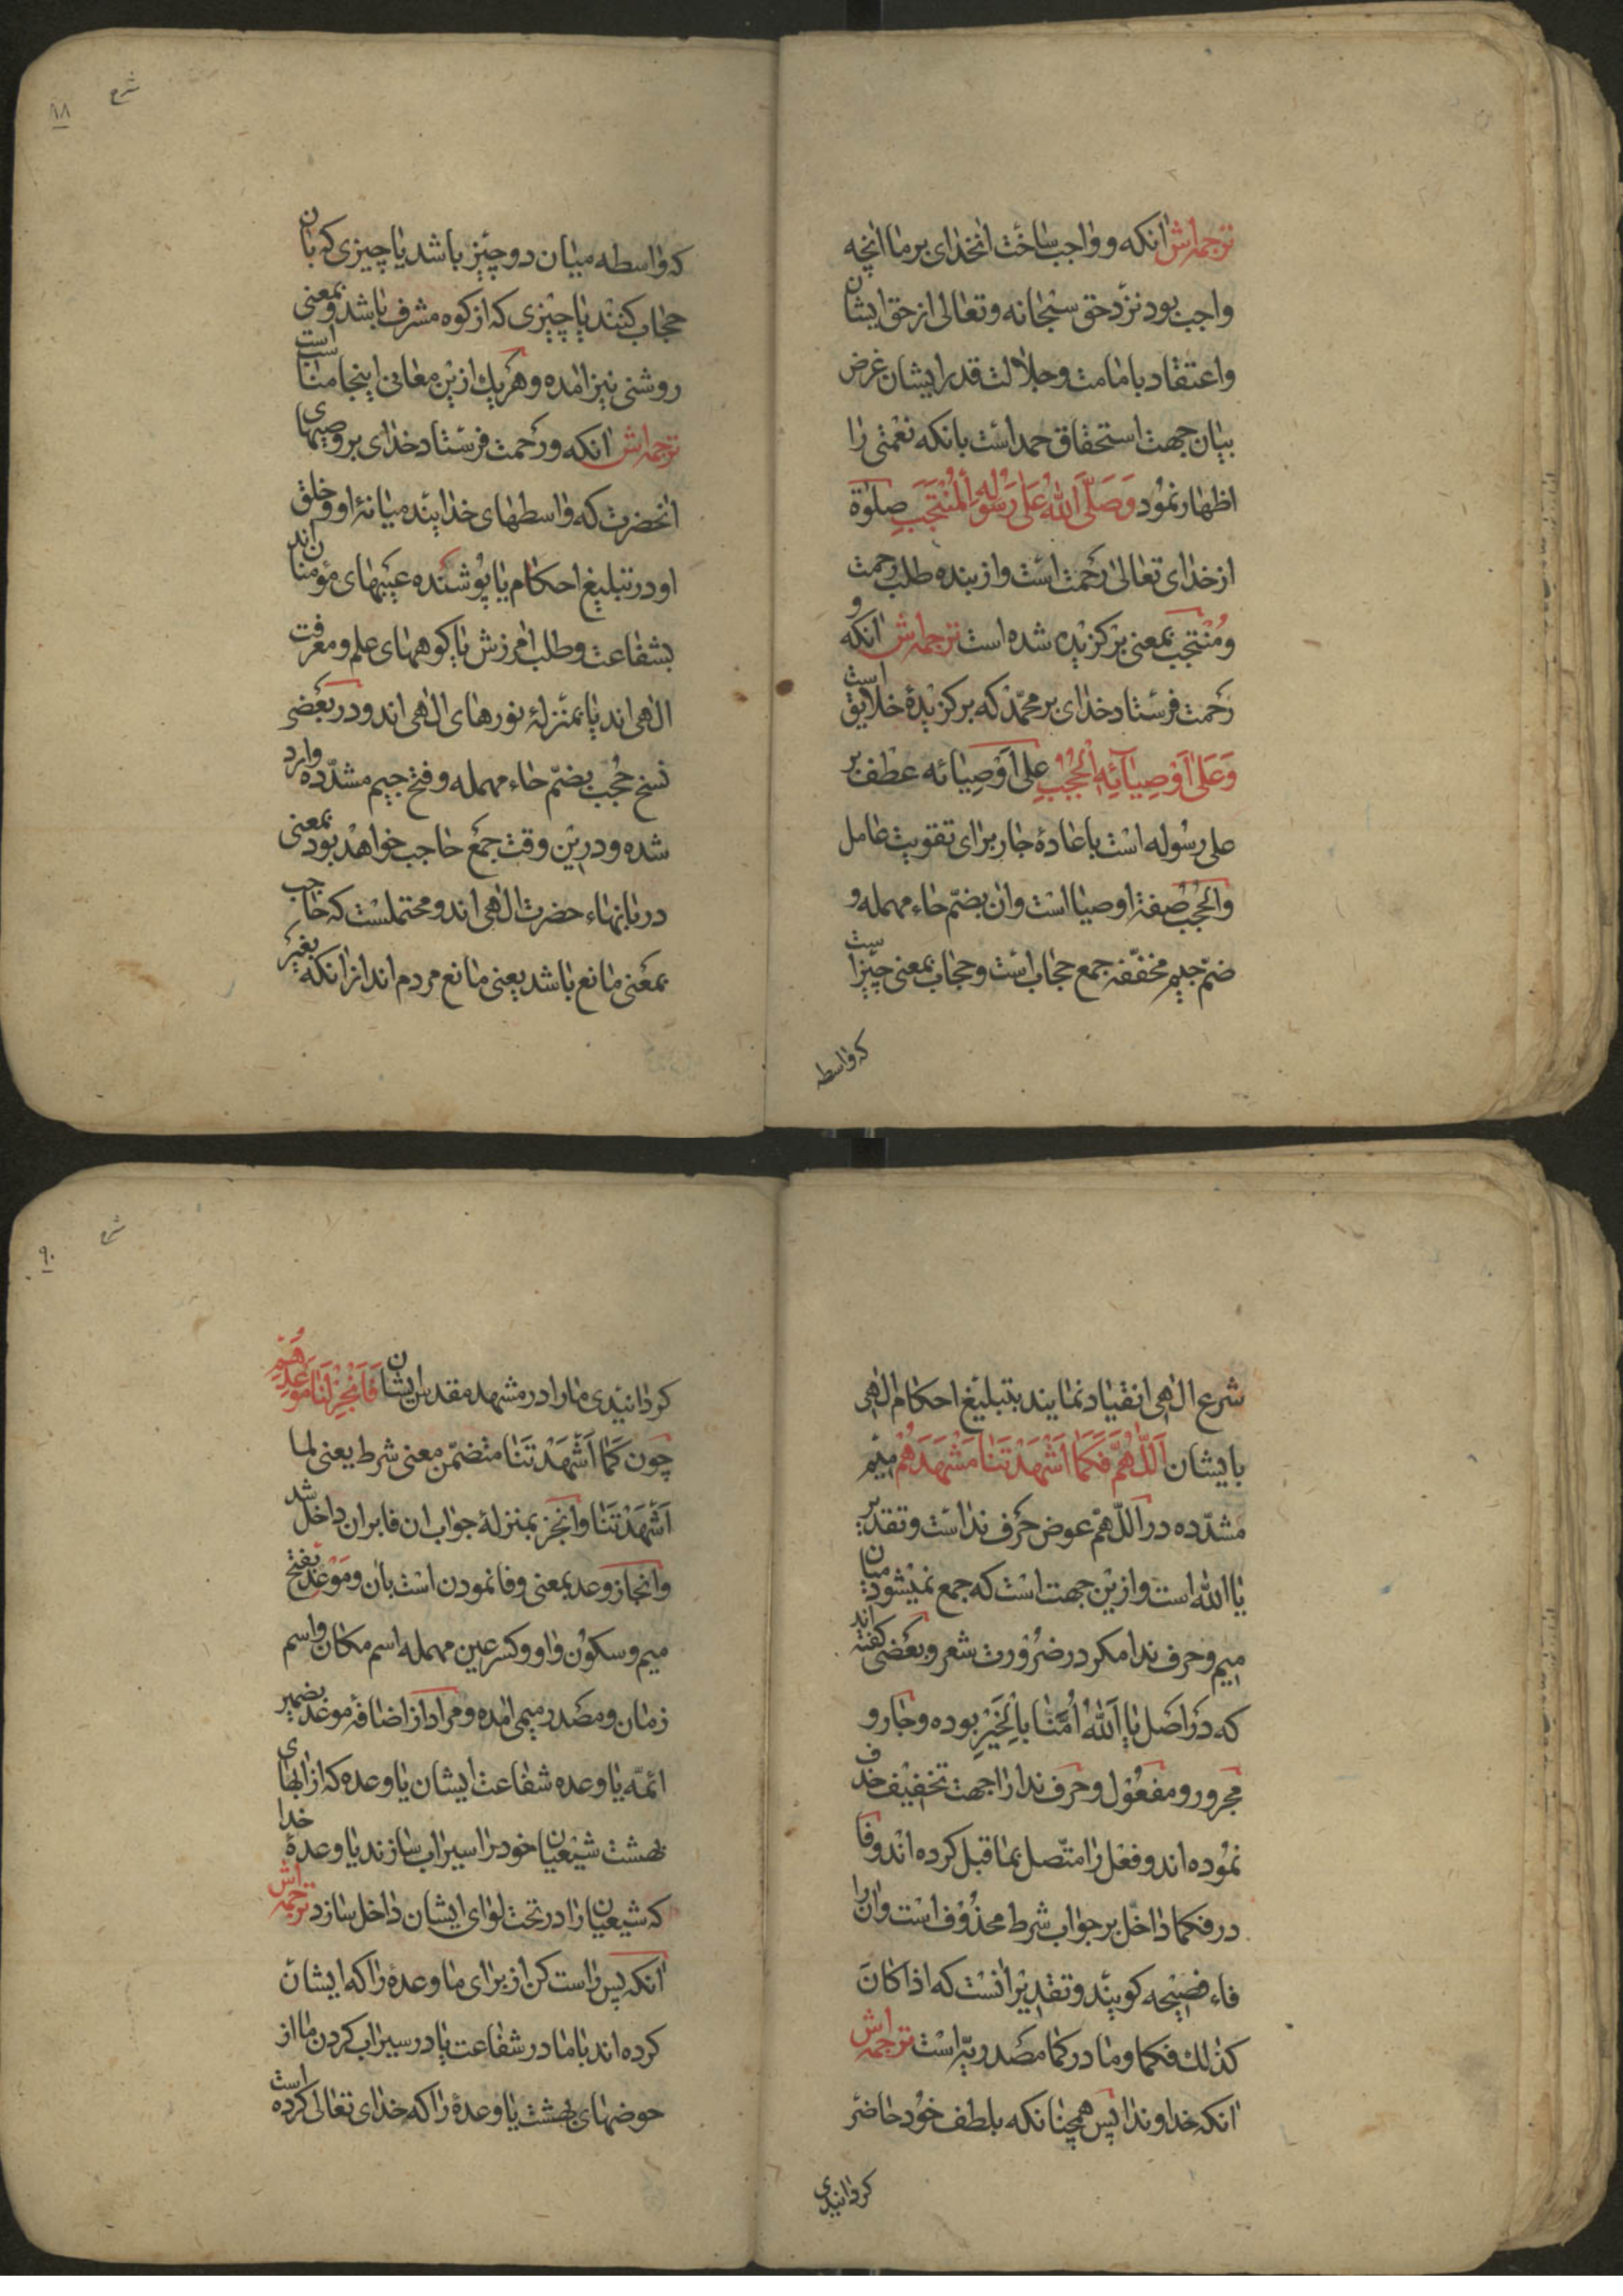 ترجمه‌اش انکه و واجب ساخت انخدای بر ما انچه
واجب بود نزد حق سبحانه وتعالی از حق ایشان
واعتقاد بامامت وجلالت قدر ایشان غرض
بیان جهت استحقاق حمد است بانکه نعمتی را
اظهار نمود وَصَلَّی اَللهُ عَلی رَسُولِهِ اَلْمُنْتَجَبِ صلوة
از خدای تعالی رحمت است واز بنده طلب رحمت
ومُنْتَجَب بمعنی برکزیده شده است ترجمه‌اش انکه و
رحمت فرستاد خدای بر محمّد که برکزیدهٔ خلایق است
وَعَلی اَوْصِیآئِهِ الْحُجُبِ علی اوصیائه عطف بر
علی رسوله است باعادهٔ جار برای تقویت عامل
والحُجُب صفة اوصیا است وان بضمّ حاء مهمله و
ضمّ جیم مخفّفه جمع حجاب است وحجاب بمعنی چیزیست
که واسطه
شرح
۸۸
که واسطه میان دو چیز باشد یا چیزی که بان
حجاب کنند یا چیزی که از کوه مشرف باشد وبمعنی
روشنی نیز امده وهر یك ازین معانی اینجا مناسب است
ترجمه‌اش انکه ورحمت فرستاد خدای بر وصیهای
انحضرت که واسطهای خدایند میانهٔ او وخلق
او در تبلیغ احکام یا پوشنده عیبهای مؤمنان اند
بشفاعت وطلب امرزش یا کوههای علم ومعرفت
الهی اند یا بمنزلهٔ نورهای الهی اند ودر بعضی
نسخ حُجّب بضمّ حاء مهمله وفتح جیم مشدّده وارد
شده ودرین وقت جمع حاجب خواهد بود بمعنی
دربانهاء حضرت الهی اند ومحتملست که حاجب
بمعنی مانع باشد یعنی مانع مردم اند از انکه بغیر
شرع الهی انقیاد نمایند بتبلیغ احکام الهی
بایشان اَللّهُمَّ فَکَما اَشْهَدْتَنا مَشْهَدَهُمْ میم
مشدّده در اللّهمّ عوض حرف ندا است وتقدیر
یا الله است وازین جهت است که جمع نمیشود میان
میم وحرف ندا مکر در ضرورت شعر وبعضی کفته اند
که در اصل یا اَللهُ اُمَّنا بِالْخَیْرِ بوده وجار و
مجرور ومفعول وحرف ندا را جهت تخفیف حذف
نموده اند وفعل را متّصل بما قبل کرده اند وفا
در فکما داخل بر جواب شرط محذوف است وان را
فاء فصیحه کویند وتقدیر انست که اذا کان
کذلك فکما وما در کما مصدریّه است ترجمه‌اش
انکه خداوندا پس همچنانکه بلطف خود حاضر
کردانیدی
شرح
۹۰
کردانیدی ما را در مشهد مقدس ایشان فَاَنْجِزْ لَنا مَوْعِدَهُمْ
چون کَما اَشْهَدْتَنا متضمّن معنی شرط یعنی لما
اَشْهَدْتَنا وانجز بمنزلهٔ جواب ان فا بران داخل شد
وانجاز وعد بمعنی وفا نمودن است بان ومَوْعِد بفتح
میم وسکون واو وکسر عین مهمله اسم مکان واسم
زمان ومصدر میمی امده ومراد از اضافهٔ موعد بضمیر
ائمّه یا وعده شفاعت ایشان یا وعده که از ابهای
بهشت شیعیان خود را سیراب سازند یا وعدهٔ خدا
که شیعیان را در تحت لوای ایشان داخل سازد ترجمه‌اش
انکه پس راست کن از برای ما وعدهٔ را که ایشان
کرده اند باما در شفاعت یا در سیراب کردن ما از
حوضهای بهشت یا وعدهٔ را که خدای تعالی کرده است